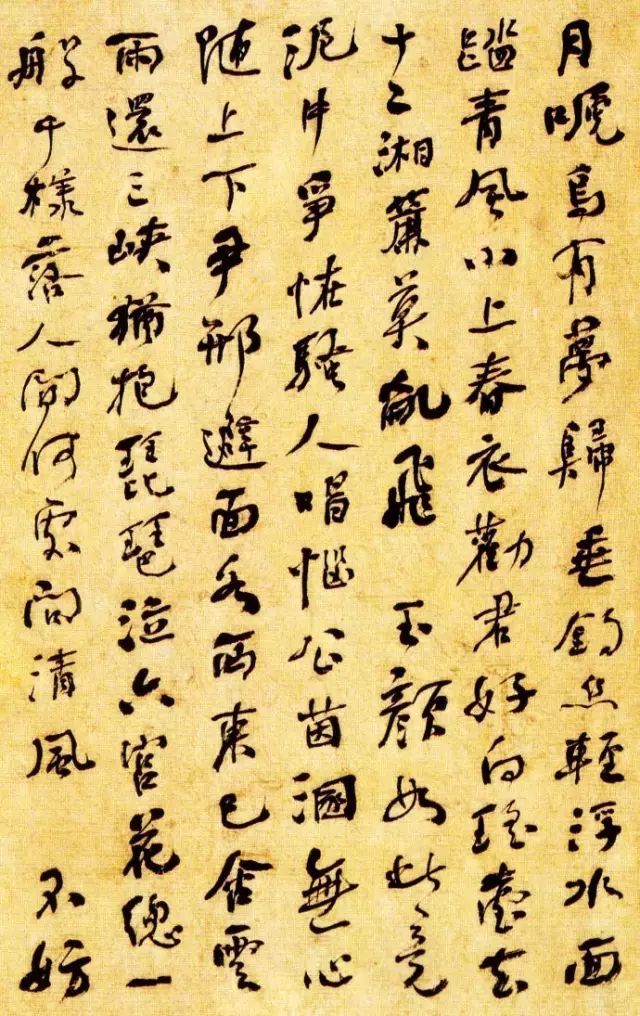 月嗁烏有夢歸垂釣魚輕浮水面
踏青風小上春衣勸君好向瑤臺去
十二湘簾莫亂飛 玉顏如此竟
泥中爭怪騷人唱惱公茵溷無心
隨上下尹邢避面各西東已舍雲
雨還三峽猶抱琵琶泣六宮花總一
般千樣落人間何處問清風 不妨